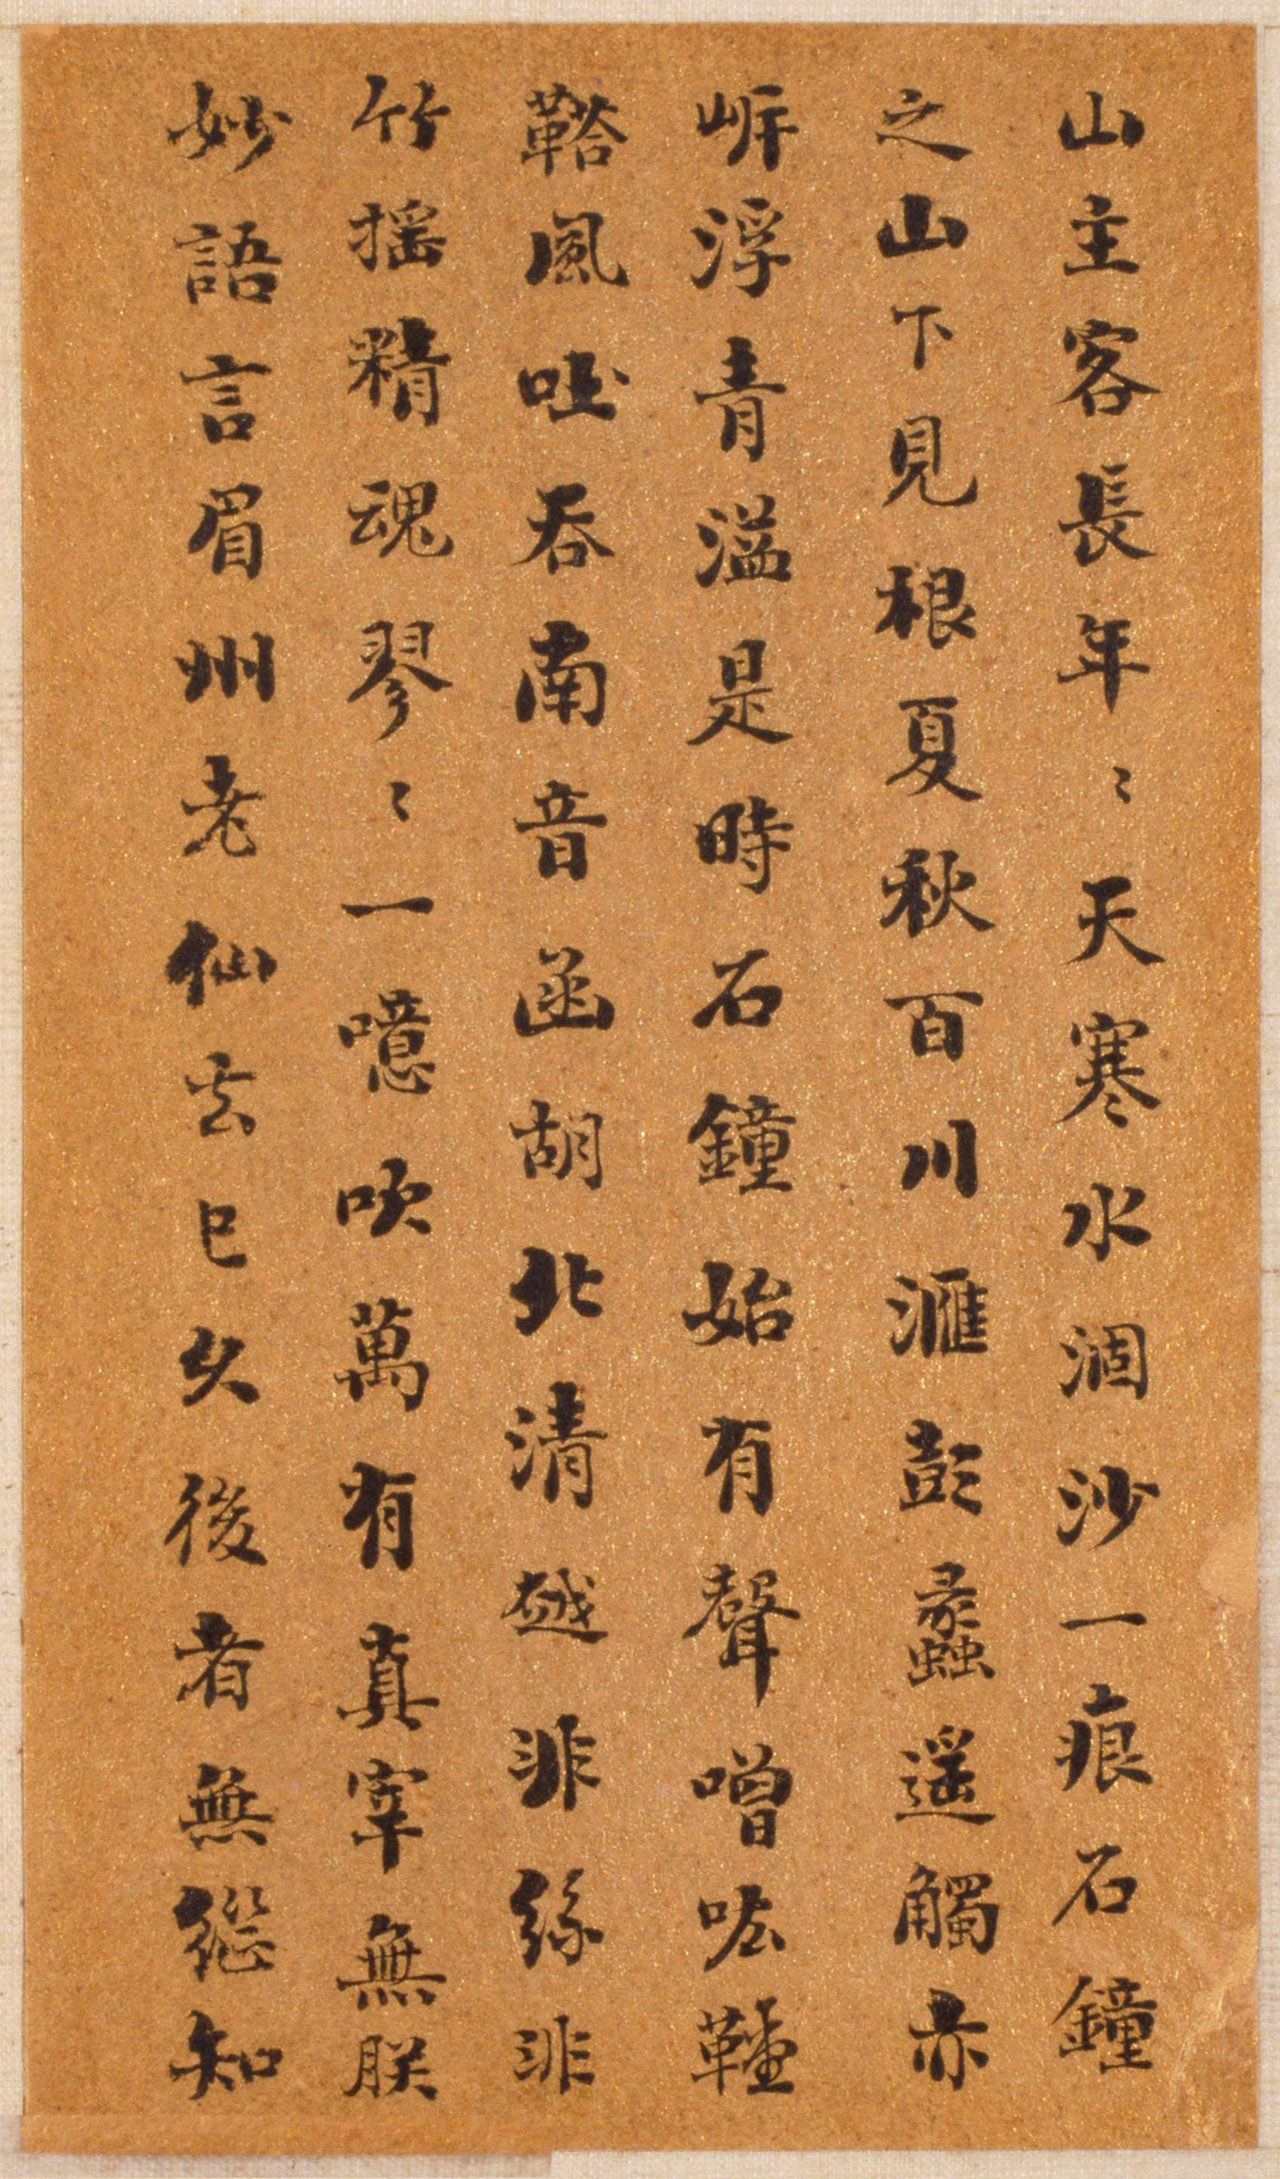 山主客長年〻天寒水涸沙一痕石鐘
之山下見根夏秋百川滙彭蠡遥觸赤
㟁浮青溢是時石鐘始有聲噌吰鞺
鞳風吐吞南音函胡北清越非絲非
竹揺精魂翏〻一噫吹萬有真宰無朕
妙語言眉州老仙去已久後者無繼知